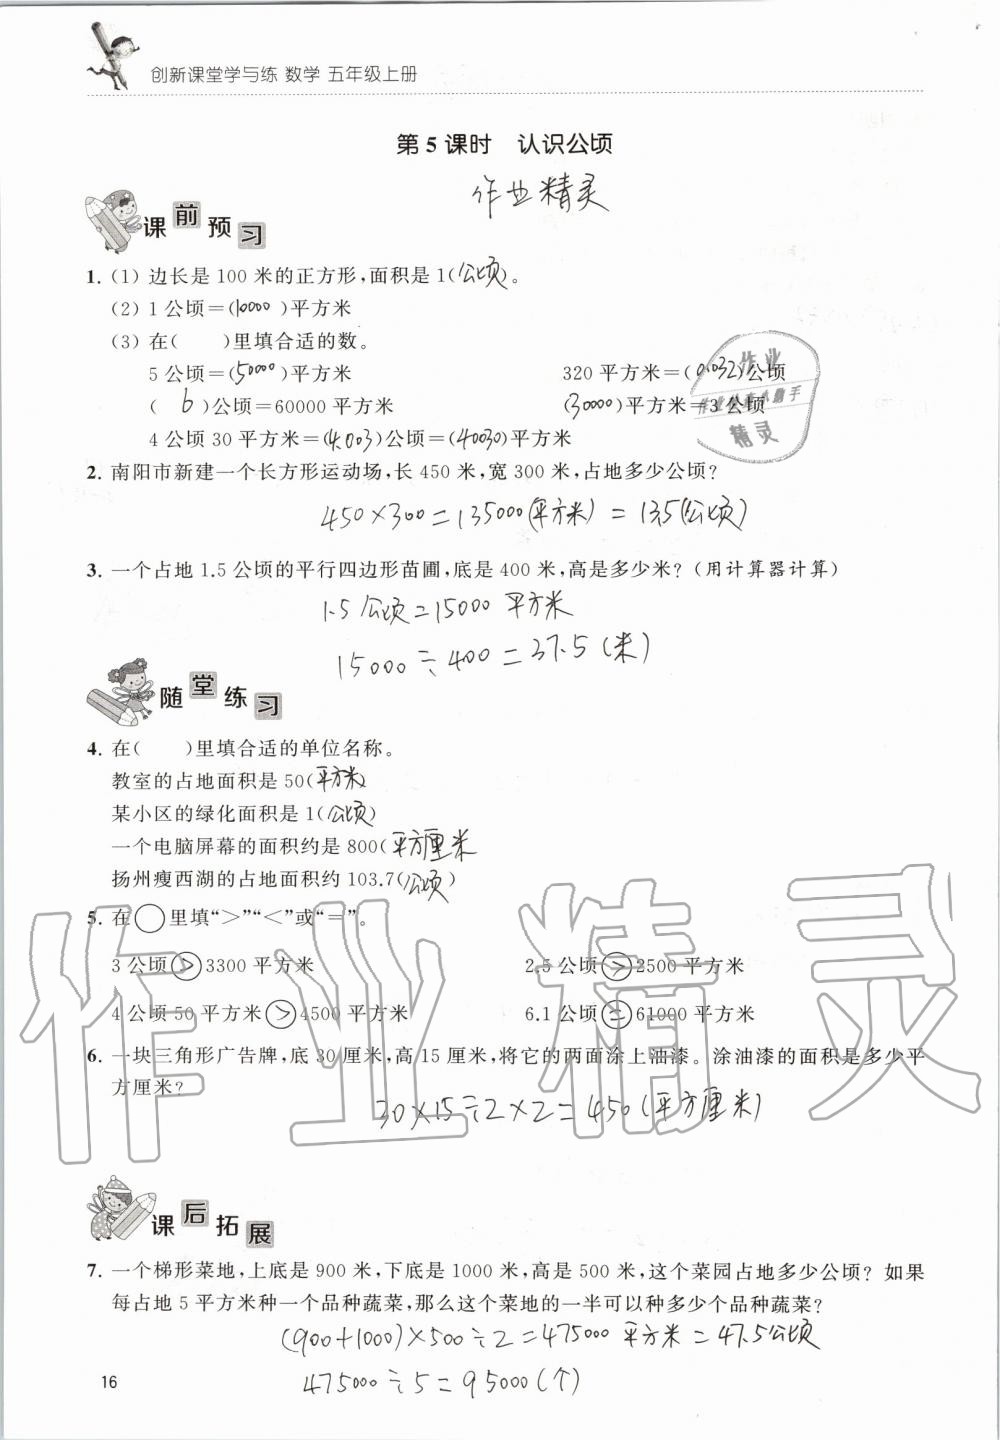 创新课堂学与练 数学 五年级上册
第5课时 认识公顷
作业精灵
课前预习
1. (1) 边长是100米的正方形,面积是1(公顷)。
(2) 1公顷=(10000)平方米
(3) 在(  )里填合适的数。
5公顷=(50000)平方米 320平方米=(0.032)公顷
(6)公顷=60000平方米 (30000)平方米=3公顷
4公顷30平方米=(4.003)公顷=(40030)平方米
2. 南阳市新建一个长方形运动场,长450米,宽300米,占地多少公顷?
450×300=135000(平方米)=13.5(公顷)
3. 一个占地1.5公顷的平行四边形苗圃,底是400米,高是多少米?(用计算器计算)
1.5公顷=15000平方米
15000÷400=37.5(米)
随堂练习
4. 在(  )里填合适的单位名称。
教室的占地面积是50(平方米)
某小区的绿化面积是1(公顷)
一个电脑屏幕的面积约是800(平方厘米
扬州瘦西湖的占地面积约103.7(公顷)
5. 在○里填“>”“<”或“=”。
3公顷>3300平方米 2.5公顷>2500平方米
4公顷50平方米>4500平方米 6.1公顷=61000平方米
6. 一块三角形广告牌,底30厘米,高15厘米,将它的两面涂上油漆。涂油漆的面积是多少平
方厘米?
30×15÷2×2=450(平方厘米)
课后拓展
7. 一个梯形菜地,上底是900米,下底是1000米,高是500米,这个菜园占地多少公顷?如果
每占地5平方米种一个品种蔬菜,那么这个菜地的一半可以种多少个品种蔬菜?
(900+1000)×500÷2=475000平方米=47.5公顷
475000÷5=95000(个)
16
作业精灵